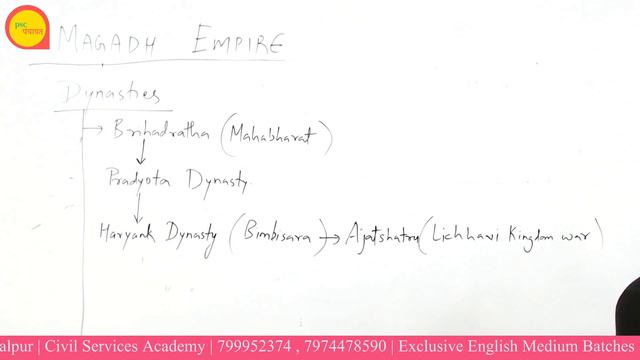 psc
पंचायत
MAGADH EMPIRE
Dynasties
→ Brihadratha (Mahabharat)
Pradyota Dynasty.
Haryank Dynasty (Bimbisara) → Ajatshatru (Lichhavi Kingdom war)
alpur | Civil Services Academy | 799952374 , 7974478590 | Exclusive English Medium Batches